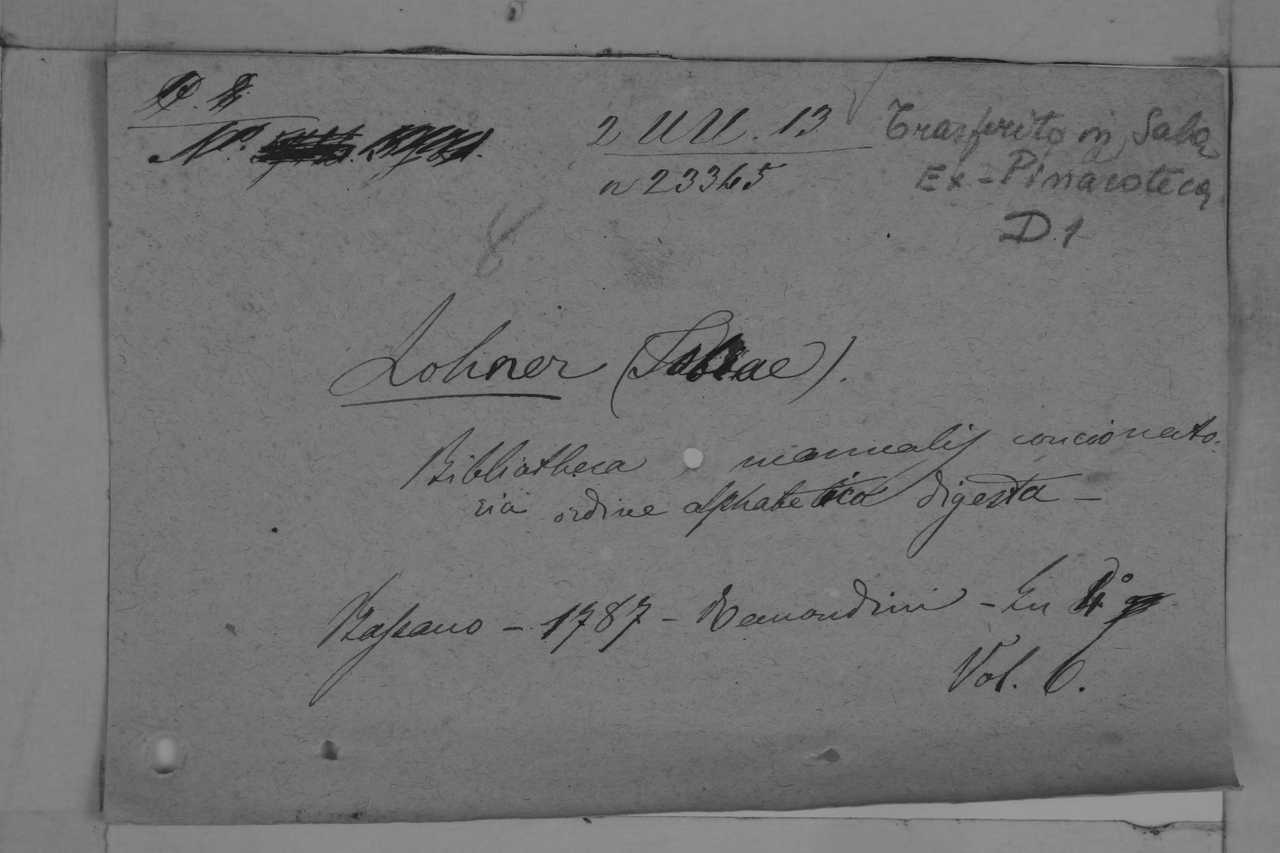 2 UU. 13
n 23365
Trasferito in Sala
Ex-Pinacoteca
D 1
8
Lohner (Tobiae).
Bibliotheca manualis concionato-
ria ordine alphabetico digesta —
Bassano — 1787 — Remondini — In 4°
Vol. 6.